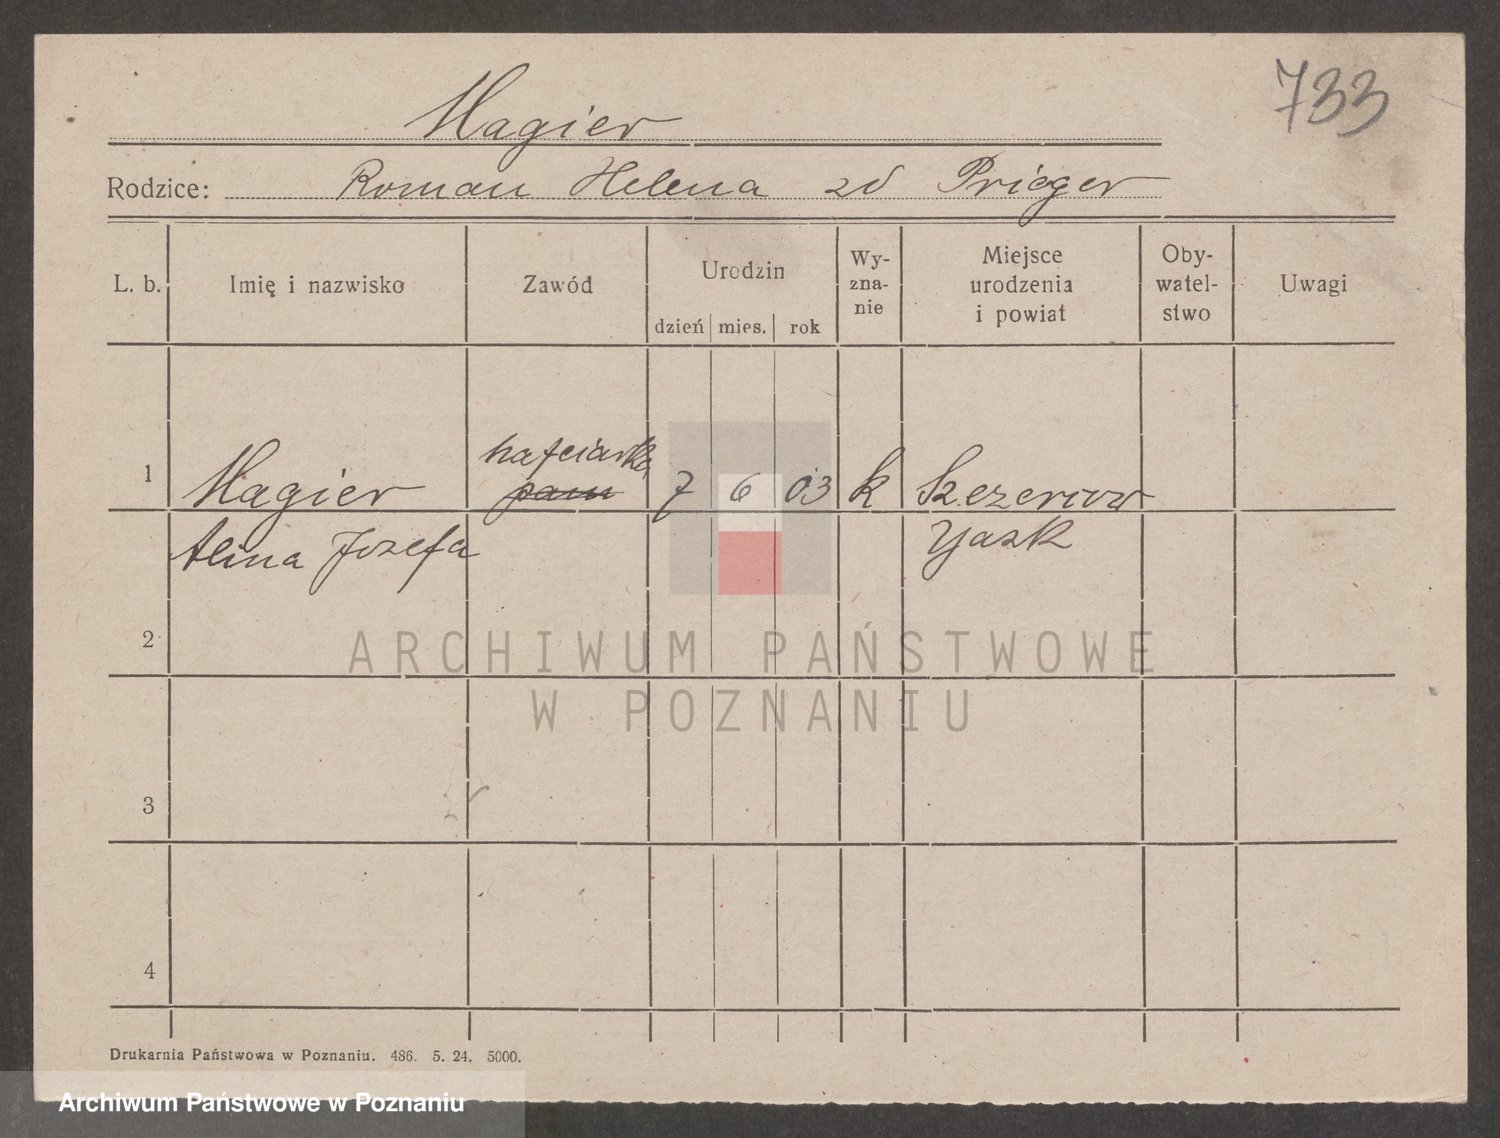 733
Magier
Rodzice: Roman Helena zd Prieger
L. b. Imię i nazwisko Zawód Urodzin dzień mies. rok Wy-zna-nie Miejsce urodzenia i powiat Oby-watel-stwo Uwagi
hafciarka
1 Magier pann 7 6 03 k Szczerców
Alina Józefa Łask
2
ARCHIWUM PAŃSTWOWE
W POZNANIU
3
4
Drukarnia Państwowa w Poznaniu. 486. 5. 24. 5000.
Archiwum Państwowe w Poznaniu